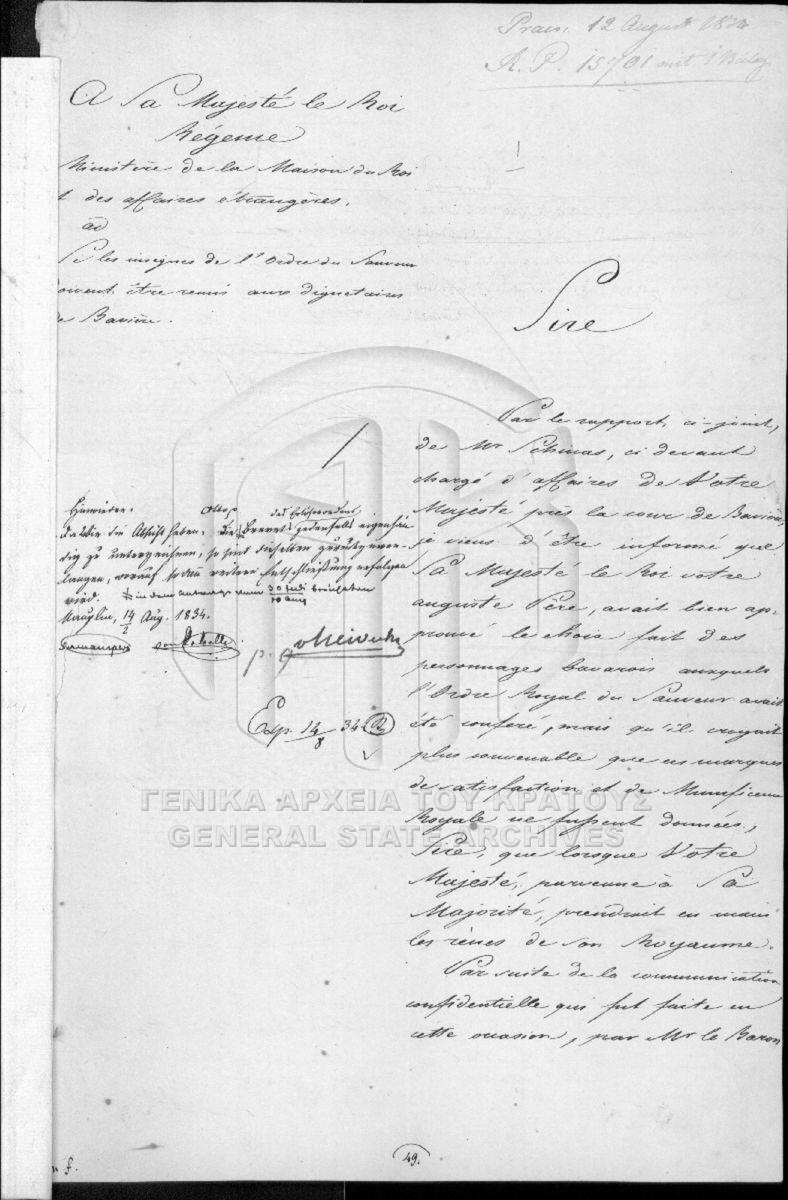 Praes. 12 August 1834
A Sa Majesté le Roi
Régence
Ministère de la Maison du Roi
t des affaires étrangères.
ad
Si les insignes de l'Ordre du Sauveur
doivent être remis aux dignetaires
de Bavière.
Sire
Par le rapport, ci-joint,
de Mr Schinas, ci devant
chargé d'affaires de Votre
Majesté près la cour de Bavière,
je viens d'être informé que
Sa Majesté le Roi votre
auguste Père, avait bien ap-
prouvé le choix fait des
personnages bavarois auxquels
l'Ordre Royal du Sauveur avait
été conféré, mais qu'il croyait
plus convenable que ces marques
de satisfaction et de Munificence
Royale ne fussent données,
Sire, que lorsque Votre
Majesté, parvenue à Sa
Majorité, prendrait en main
les rènes de son Royaume.
Par suite de la communication
confidentielle qui fut faite en
cette occasion, par Mr le Baron
Otto
daß Wir die Absicht haben, die Brevets jedenfalls eigenhän
dig zu unterzeichnen, so sind dieselben
langen, worauf sodann weitere Entschließung erfolgen
wird.
Nauplia, 14 Aug. 1834.
Exp. 14/8 34
ΓΕΝΙΚΑ ΑΡΧΕΙΑ ΤΟΥ ΚΡΑΤΟΥΣ
GENERAL STATE ARCHIVES
49.